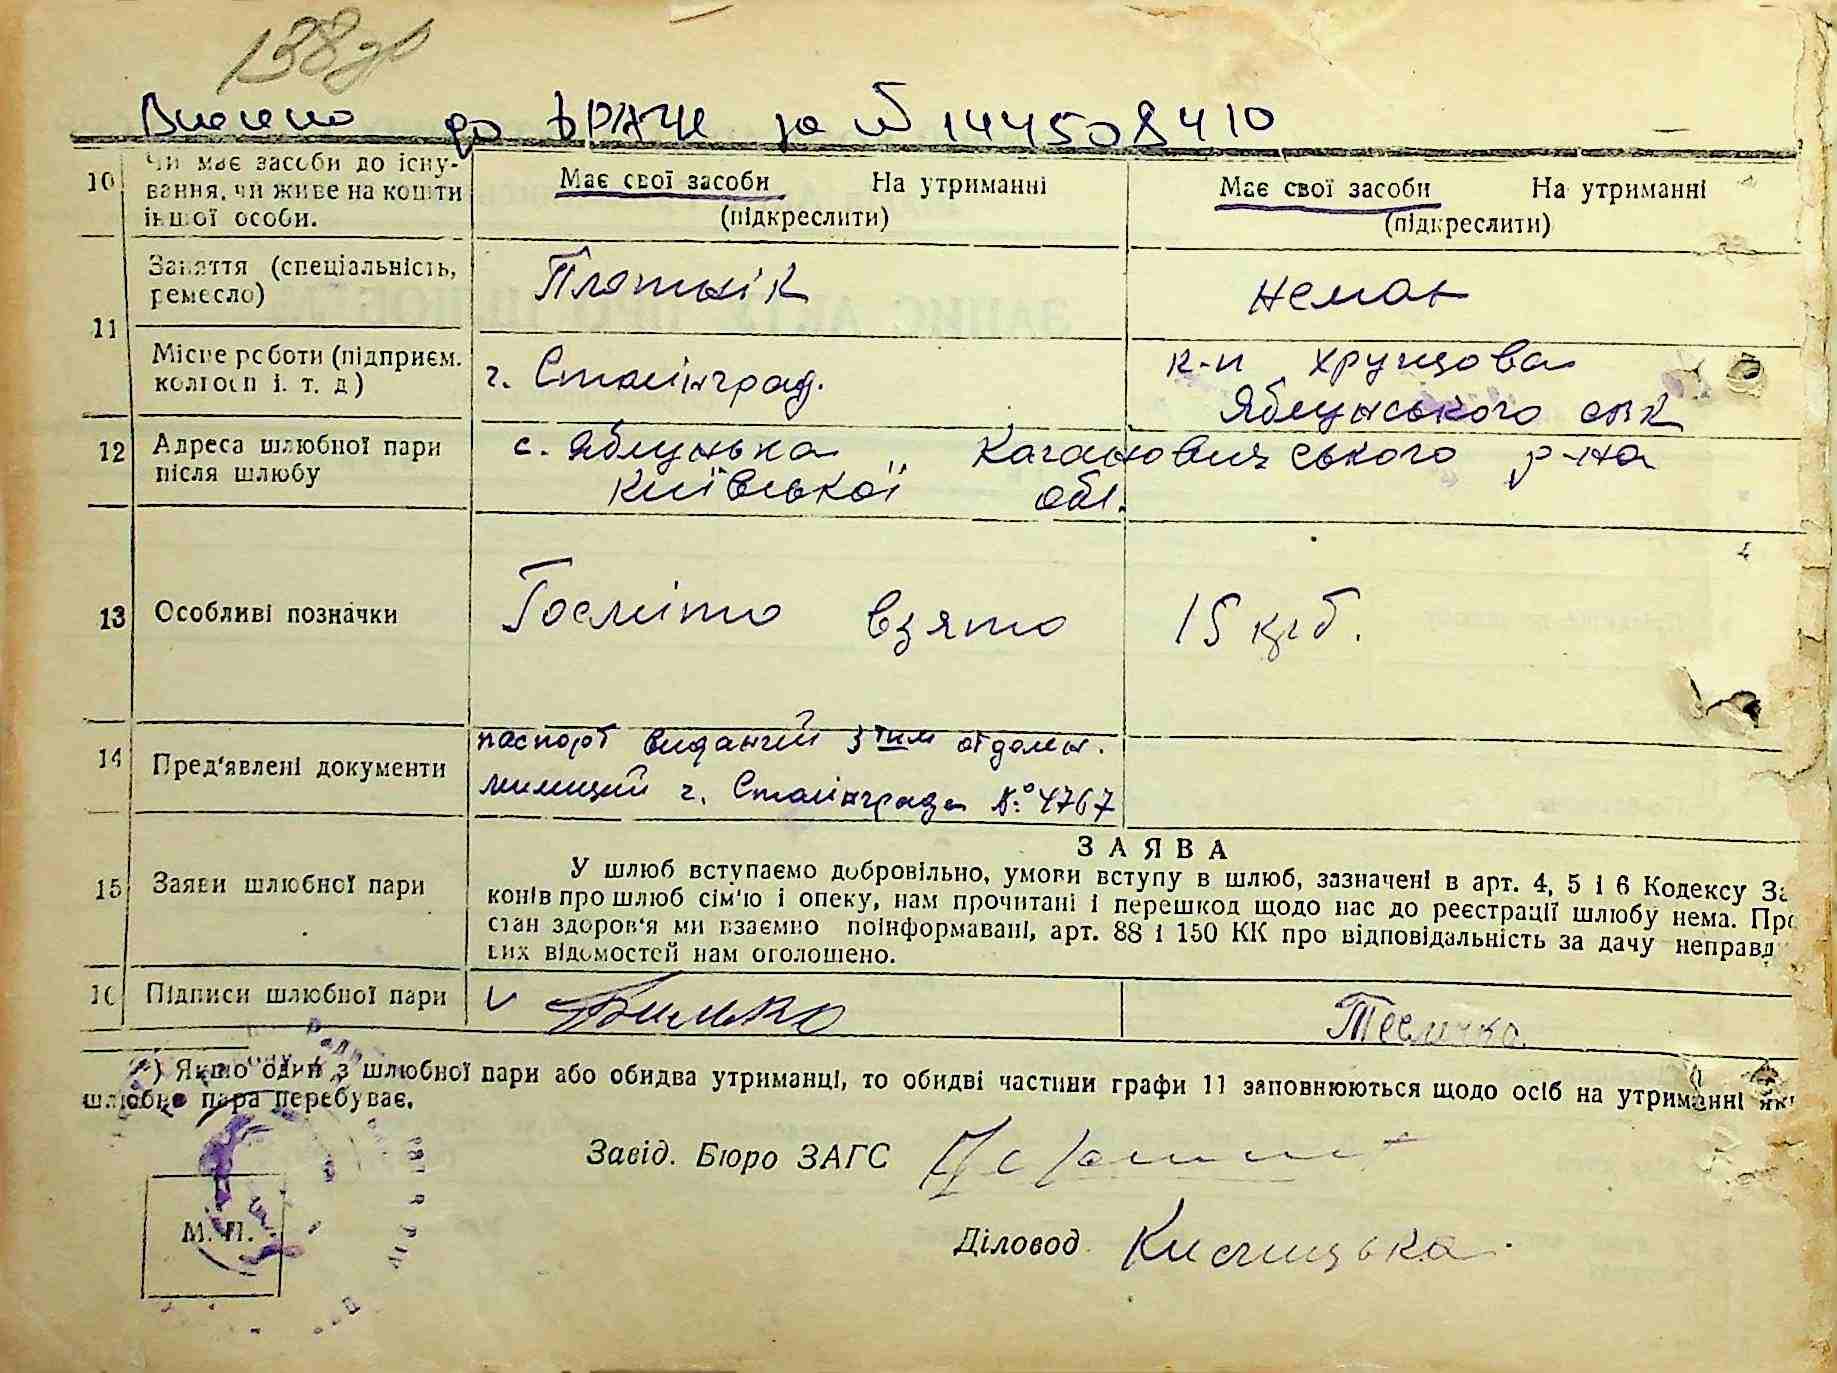 138
Внесено до ДРАЦС за № 144508410
10
Чи має засоби до існу-
вання, чи живе на кошти
іншої особи.
Має свої засоби На утриманні
(підкреслити)
Має свої засоби На утриманні
(підкреслити)
11
Заняття (спеціальність,
ремесло)
Плотнік
немає
Місце роботи (підприєм.
колгосп і. т. д)
г. Сталінград.
к-п Хрущова
Яблунського с/вк
12
Адреса шлюбної пари
після шлюбу
с. Яблунька Кагановичського р-на
Київської обл.
13
Особливі позначки
Госмито взято 15 крб.
14
Пред'явлені документи
паспорт виданий 3тим отделен.
милиций г. Сталінграда №: 4767
15
Заяви шлюбної пари
ЗАЯВА
У шлюб вступаємо добровільно, умови вступу в шлюб, зазначені в арт. 4, 5 і 6 Кодексу За
конів про шлюб сім'ю і опеку, нам прочитані і перешкод щодо нас до реєстрації шлюбу нема. Про
стан здоров'я ми взаємно поінформавані, арт. 88 і 150 КК про відповідальність за дачу неправд
вих відомостей нам оголошено.
16
Підписи шлюбної пари
Тесличко.
*) Якщо один з шлюбної пари або обидва утриманці, то обидві частини графи 11 заповнюються щодо осіб на утриманні як
шлюбна пара перебуває.
Завід. Бюро ЗАГС
Діловод
М. П.